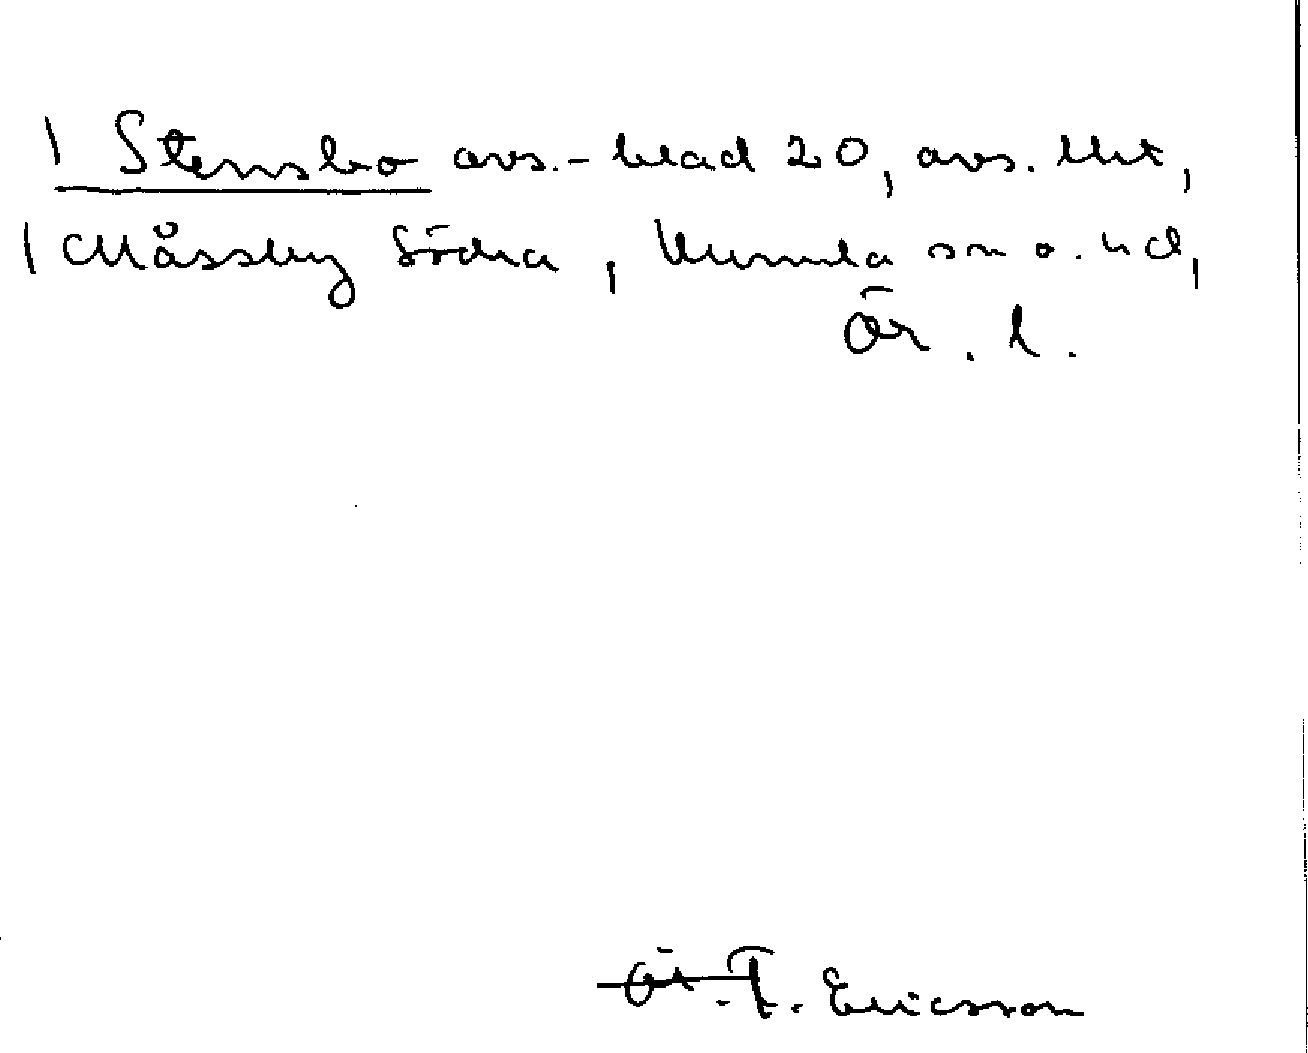 | Stensbo avs.-blad 20, avs. lht,
| Måssby Södra, Kumla sn o. hd,
Ör. l.
Ör. T. Ericsson